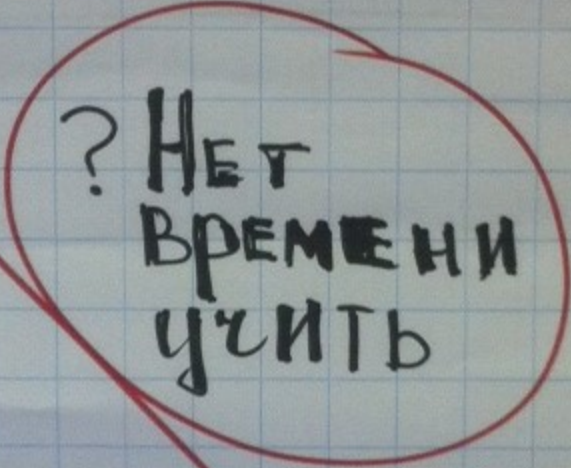 ? Нет
времени
учить